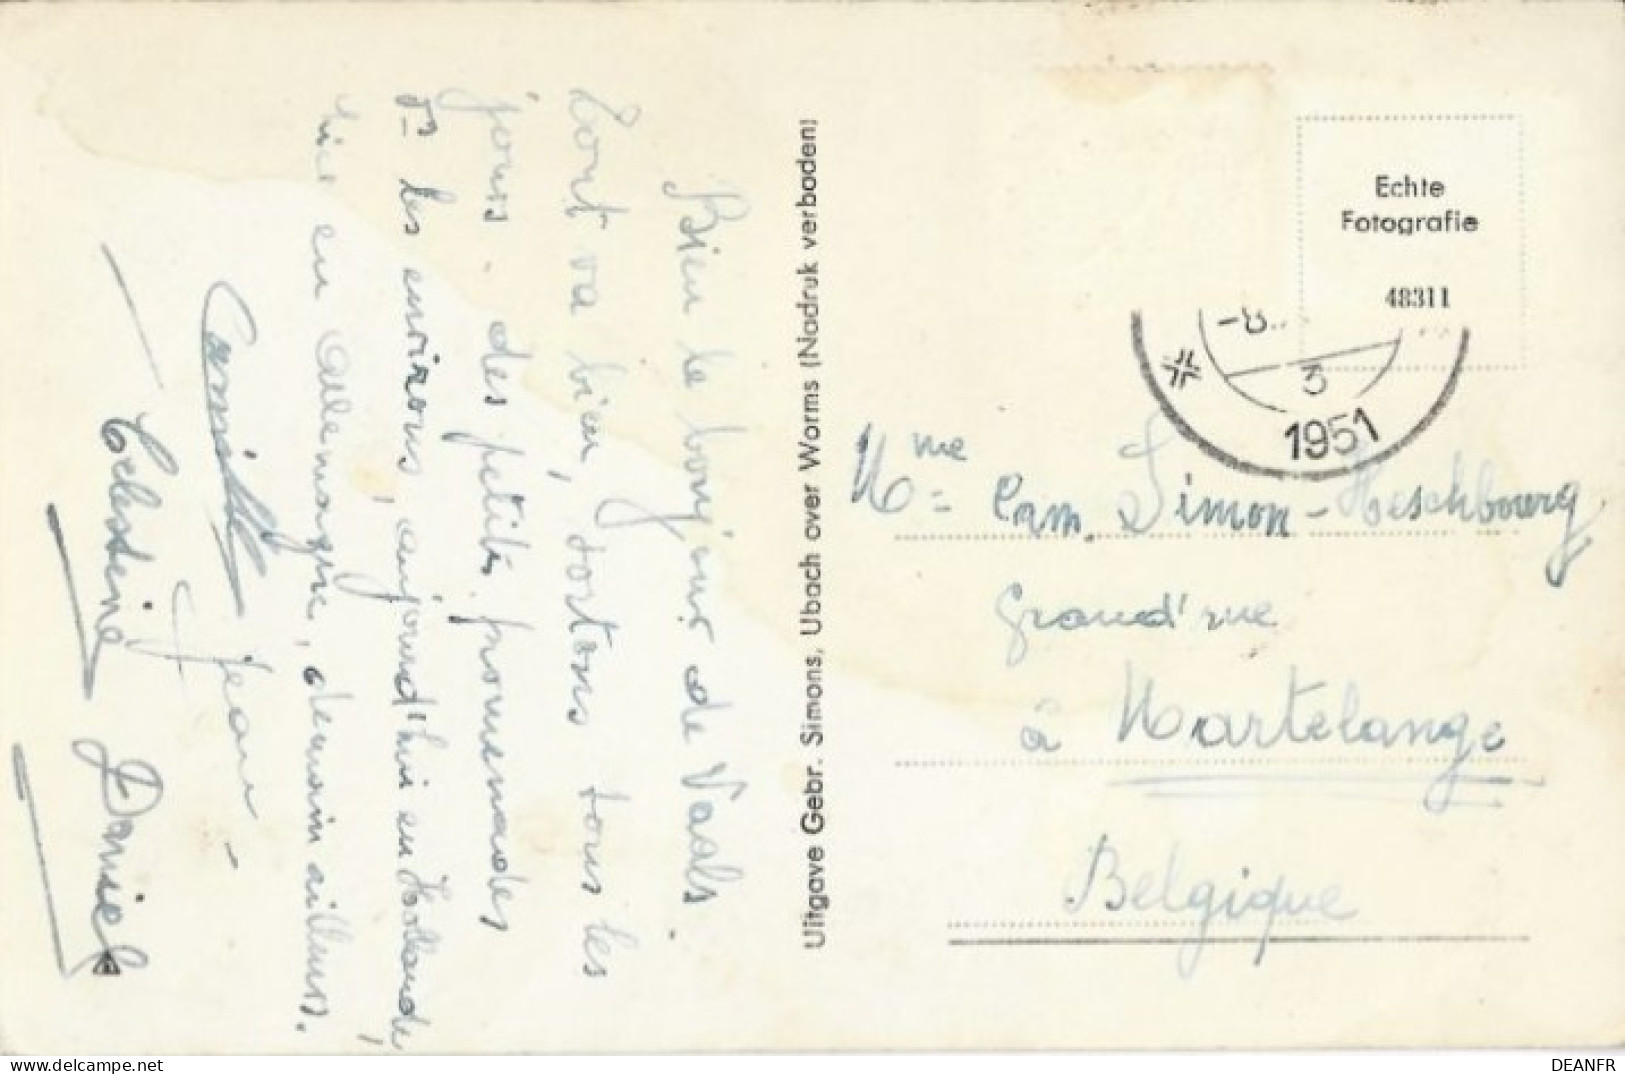 Bien le bonjour de Vaals.
Tout va bien, sortons tous les
jours. des petites promenades
ds les environs, aujourd'hui en Hollande,
hier en Allemagne, demain ailleurs.
Camille Jean -
Célestine Daniel
Uitgave Gebr. Simons, Ubach over Worms (Nadruk verboden)
Echte
Fotografie
48311
-8.
3
1951
Mme Cam. Simon-Heschbourg
Grand'rue
à Martelange
Belgique
DEANFR